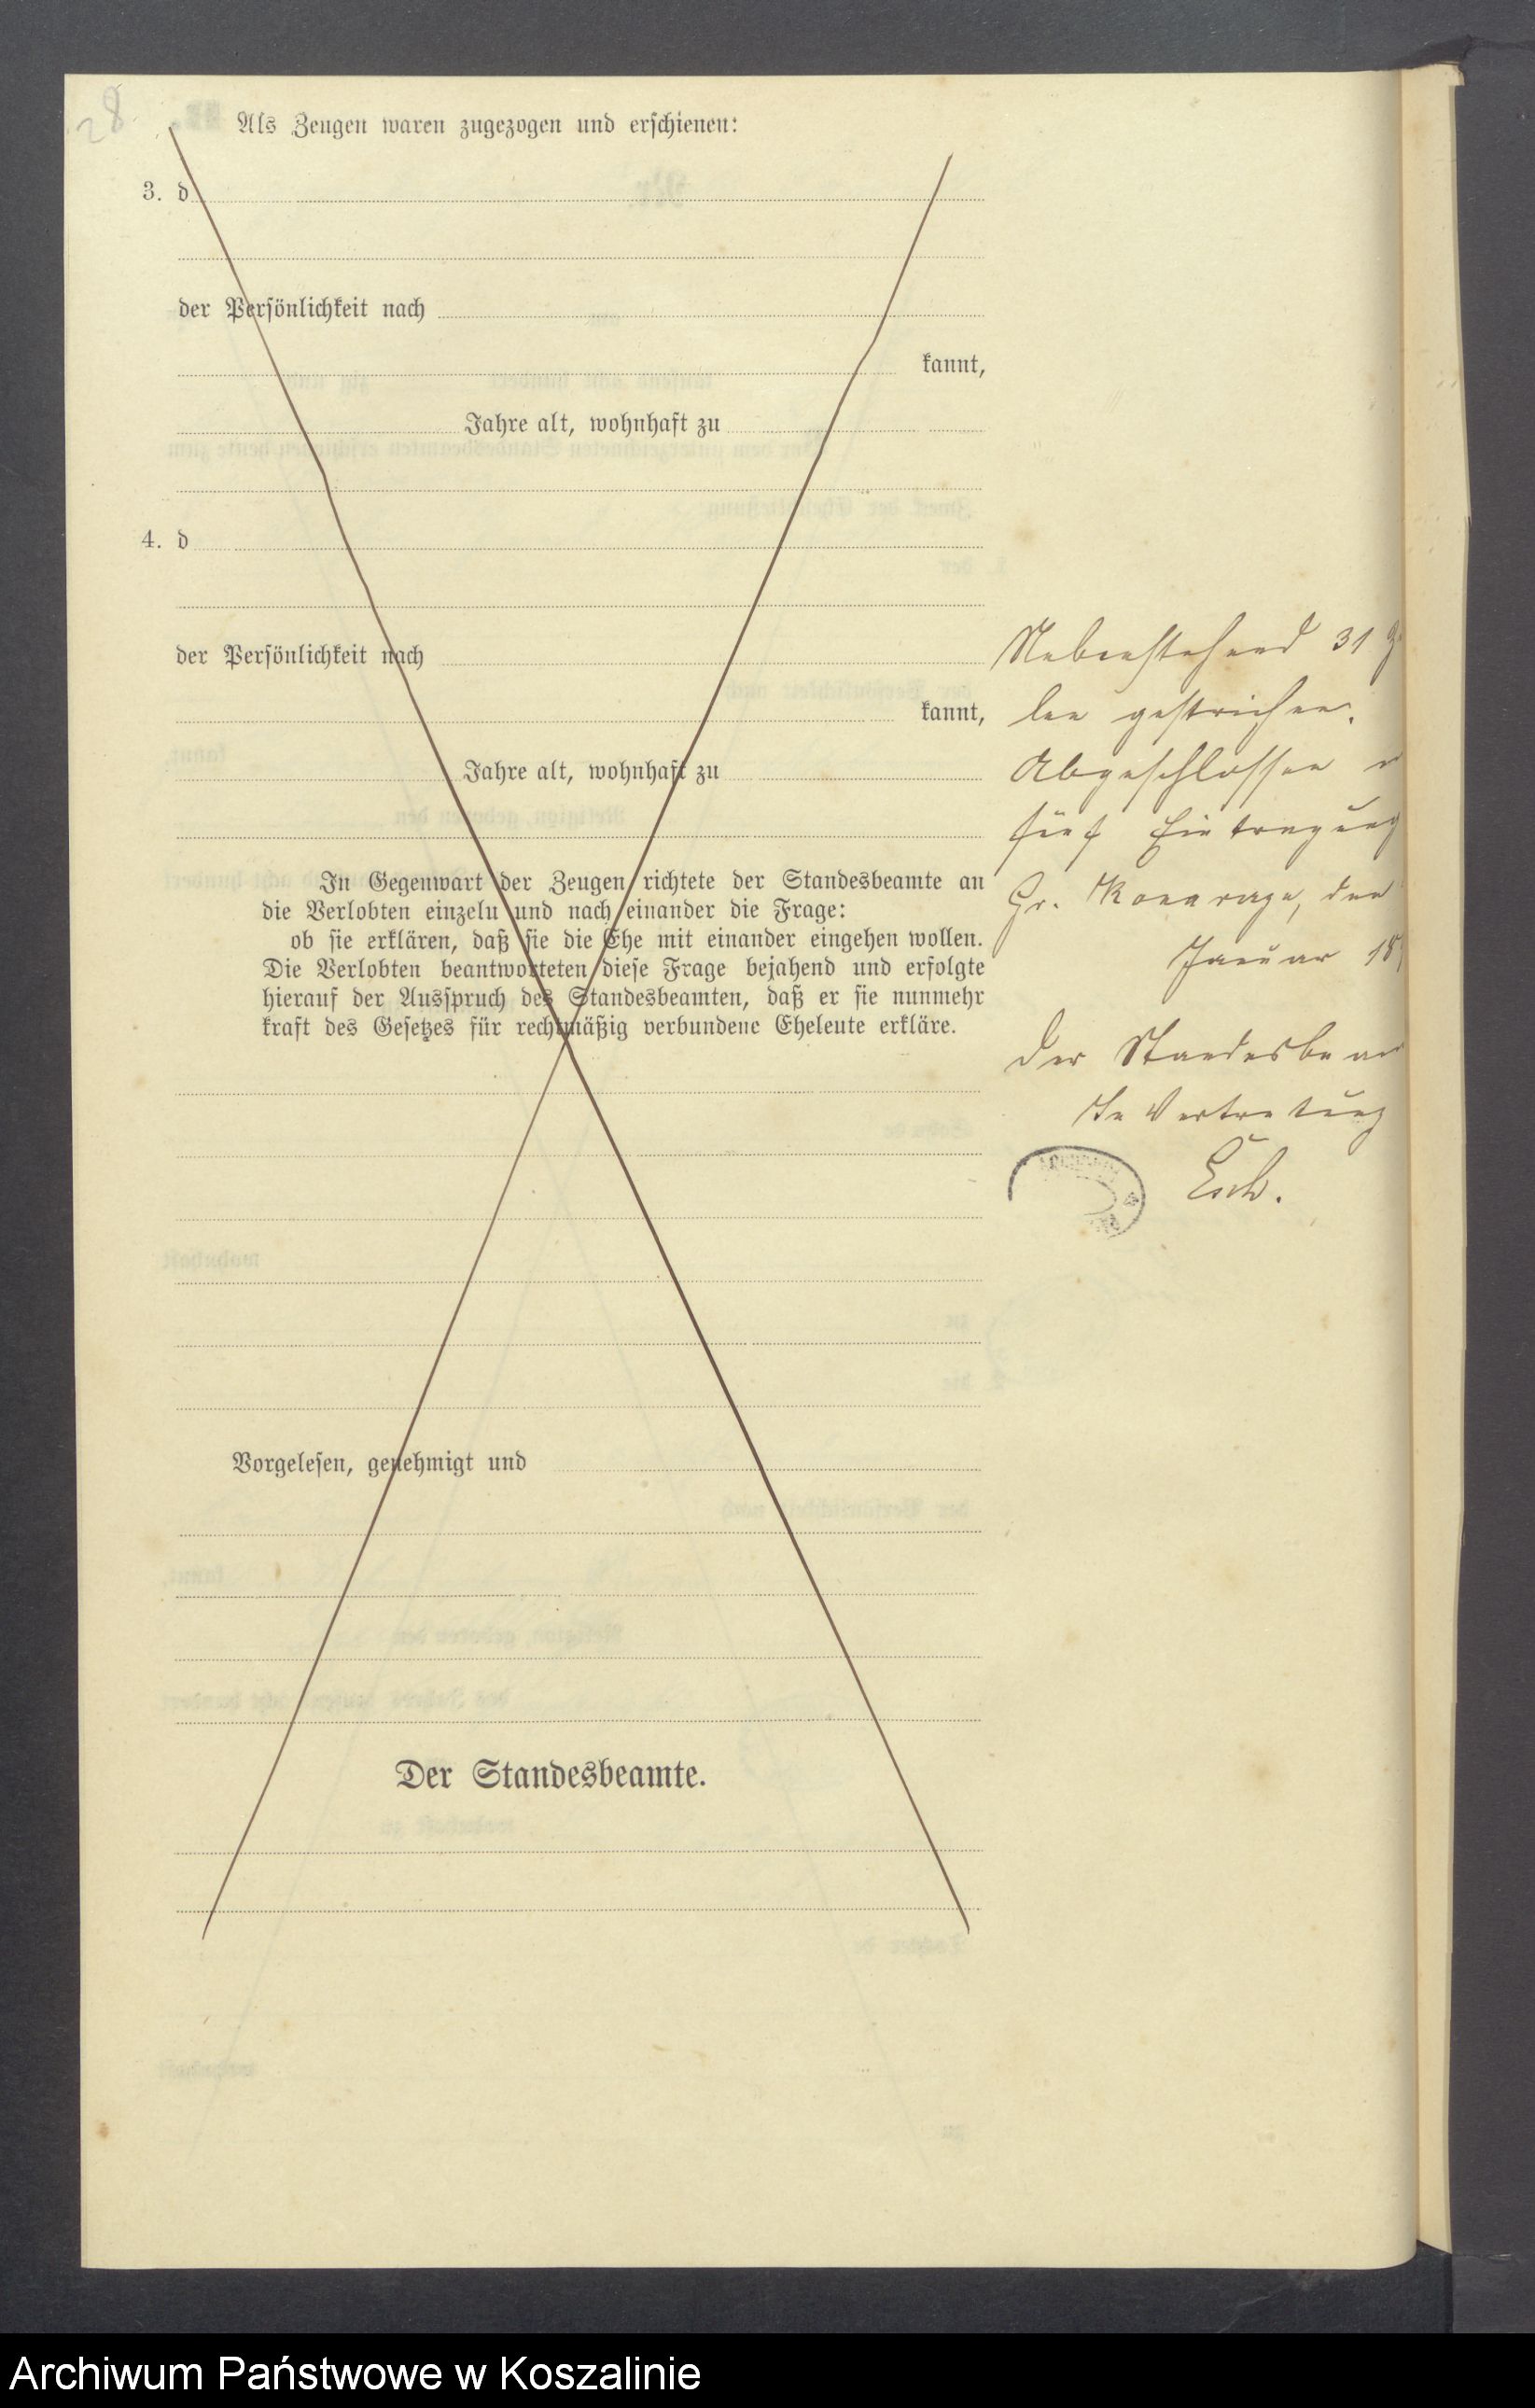 28
Als Zeugen waren zugezogen und erschienen:
3. d
der Persönlichkeit nach
kannt,
Jahre alt, wohnhaft zu
4. d
der Persönlichkeit nach
kannt,
Jahre alt, wohnhaft zu
In Gegenwart der Zeugen richtete der Standesbeamte an
die Verlobten einzeln und nach einander die Frage:
ob sie erklären, daß sie die Ehe mit einander eingehen wollen.
Die Verlobten beantworteten diese Frage bejahend und erfolgte
hierauf der Ausspruch des Standesbeamten, daß er sie nunmehr
kraft des Gesetzes für rechtmäßig verbundene Eheleute erkläre.
Vorgelesen, genehmigt und
Der Standesbeamte.
Nebenstehend 31
len gestrichen.
Abgeschlossen
fünf Eintragung
Gr. den
Januar 18
Der Standesbeam
In Vertretung
Archiwum Państwowe w Koszalinie